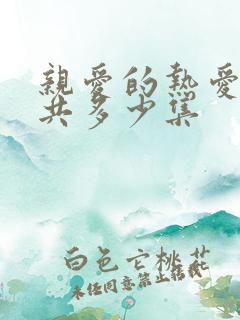 親愛的熱愛
共多少集
白色亡桃花
未经同意禁止转载